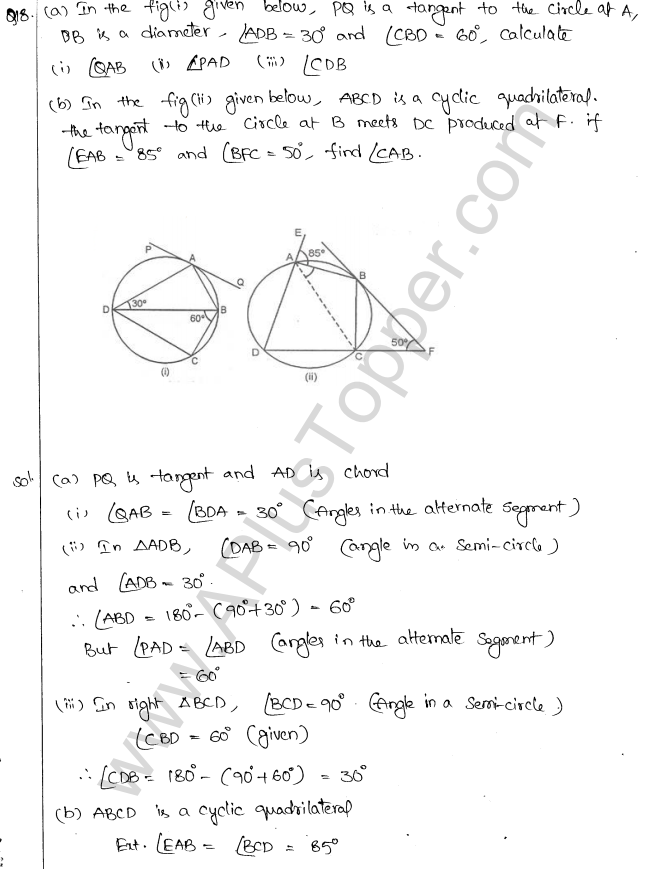 Q18. (a) In the fig(i) given below, PQ is a tangent to the circle at A,
DB is a diameter. ∠ADB = 30° and ∠CBD = 60°, calculate
(i) ∠QAB (ii) ∠PAD (iii) ∠CDB
(b) In the fig(ii) given below, ABCD is a cyclic quadrilateral.
the tangent to the circle at B meets DC produced at F. if
∠EAB = 85° and ∠BFC = 50°, find ∠CAB.
P A Q D 30° B 60° C
(i)
E A 85° B D C 50° F
(ii)
www.APlusTopper.com
Sol. (a) PQ is tangent and AD is chord
(i) ∠QAB = ∠BDA = 30° (Angles in the alternate segment)
(ii) In ΔADB, ∠DAB = 90° (angle in a semi-circle)
and ∠ADB = 30°.
∴ ∠ABD = 180° - (90° + 30°) = 60°
But ∠PAD = ∠ABD (angles in the alternate segment)
= 60°
(iii) In right ΔBCD, ∠BCD = 90° (Angle in a semi-circle)
∠CBD = 60° (given)
∴ ∠CDB = 180° - (90° + 60°) = 30°
(b) ABCD is a cyclic quadrilateral
Ext. ∠EAB = ∠BCD = 85°